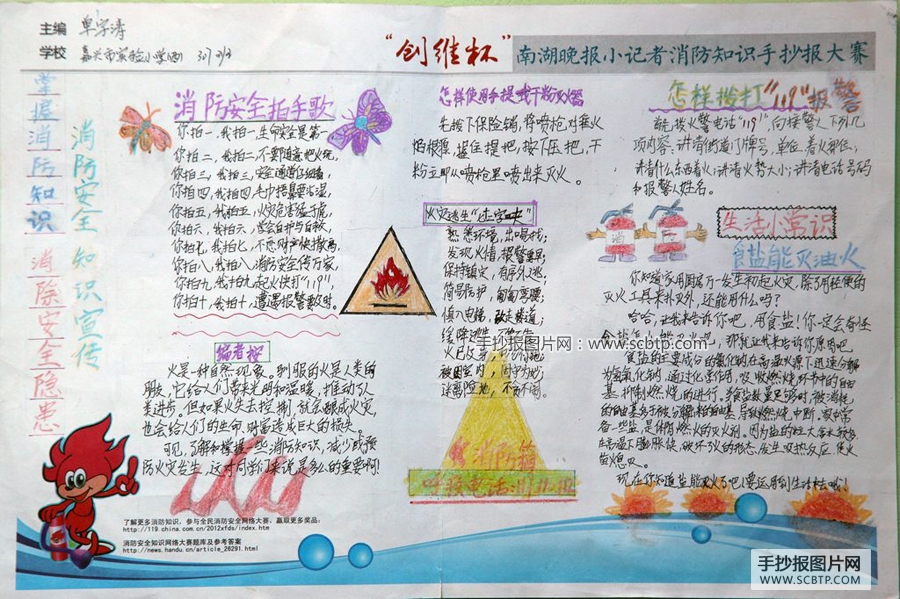 主编 单宇涛
学校 嘉兴市实验小学(西) 301
"创维杯"南湖晚报小记者消防知识手抄报大赛
掌握消防知识 消除安全隐患
消防安全知识宣传
消防安全拍手歌
你拍一,我拍一,生命安全是第一
你拍二,我拍二,不要随意把火玩,
你拍三,我拍三,安全通道仔细看,
你拍四,我拍四,毛巾捂鼻要弄湿,
你拍五,我拍五,火灾危害猛于虎,
你拍六,我拍六,学会自护与自救,
你拍七,我拍七,不慌
你拍八,我拍八,消防安全传万家,
你拍九,我拍九,起火快打"119",
你拍十,我拍十,遭遇报警数时。
编者按
火是一种自然现象。驯服的火是人类的
朋友,它给人们带来光明和温暖,推动了人
类进步。但如果火失去控制,就会酿成火灾,
也会给人们的生命、财富造成巨大的损失。
可见,了解和掌握一些消防知识,减少或预
防火灾发生,这对同学们来说是多么的重要啊!
怎样使用手提式干粉灭火器
先拔下保险销,将喷枪对准火
焰根部,握住提把,按下压把,干
粉立即从喷枪里喷出来灭火。
火灾逃生"十字
熟悉环境,出口易找;
发现火情,报警要早;
保持镇定,有序外逃;
简易防护,匍匐弯腰;
慎入电梯,改走楼道;
缓降逃生,不
火已及身,
被困室内,固守为妙;
远离险地,不贪不闹。
消防箱
怎样拨打"119"报警
首先拨火警电话"119",向接警人下列几
项内容:讲清街道门牌号,单位,着火部位;
讲清什么东西着火;讲清火势大小;讲清电话号码
和报警人姓名。
消
生活小常识
食盐能灭油火
你知道家用图厨房一发生初起火灾,除了用轻便的
灭火工具来扑灭外,还能用什么吗?
哈哈,让我来告诉你吧,用食盐!你一定会奇怪
食盐的主要成分的氯化钠在高温火源下迅速分解
为氢氧化钠,通过化学作用,吸收燃烧环节中的自由
基,抑制燃烧的进行。
现在你知道盐能灭火了吧!要运用到生活中去哦!
手抄报图片网:www.scbtp.com
了解更多消防知识,参与全民消防安全网络大赛,赢取更多奖品:
http://119.china.com.cn/2012xfds/index.htm
消防安全知识网络大赛题库及参考答案
http://news.handu.cn/article_26291.htm
手抄报图片网
WWW.SCBTP.COM